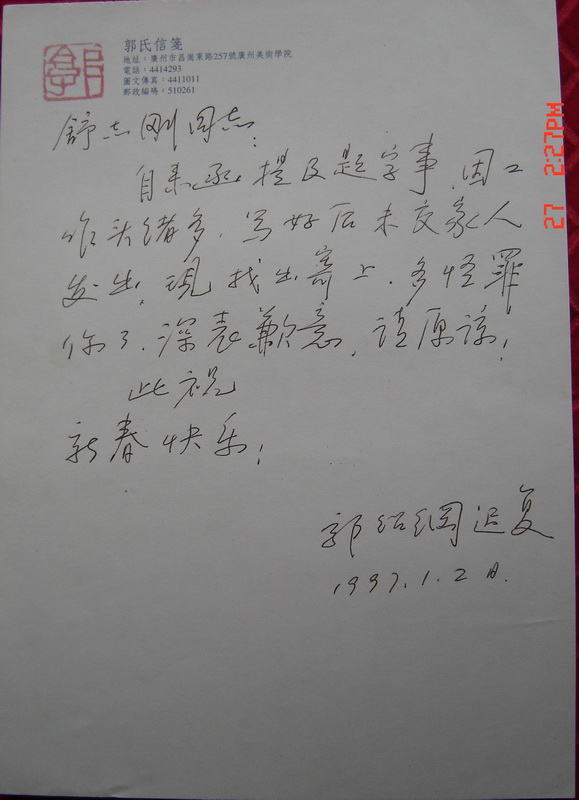 郭氏信箋
地址：廣州市昌崗東路257號廣州美術學院
電話：4414293
圖文傳真：4411011
郵政編碼：510261
舒志刚同志：
自来函提及题字事，因工
作头绪多，写好后未交家人
发出，现找出寄上，多怪罪
你了，深表歉意，请原谅！
此祝
新春快乐！
郭绍纲迟复
1997.1.2日.
27 2:27PM